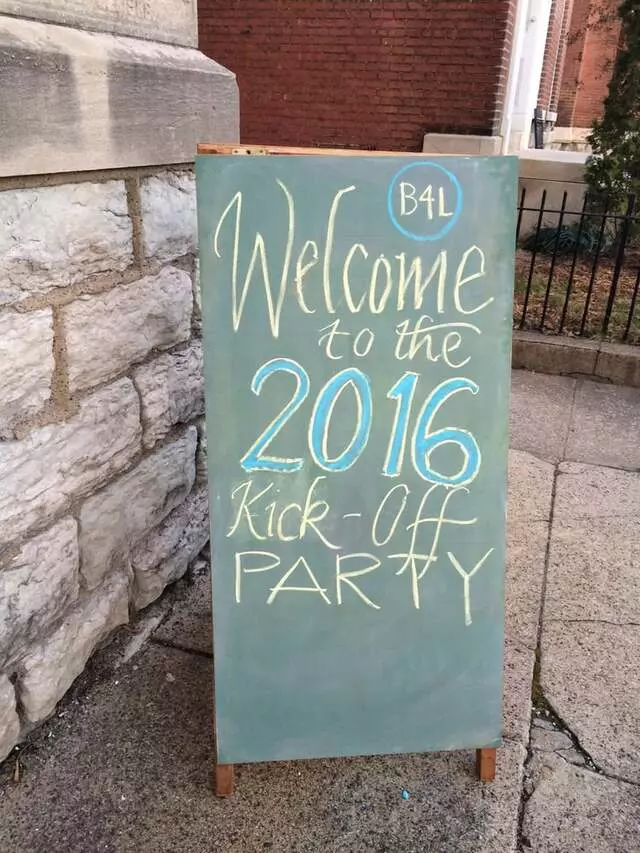 B4L
Welcome
to the
2016
Kick-Off
PARTY